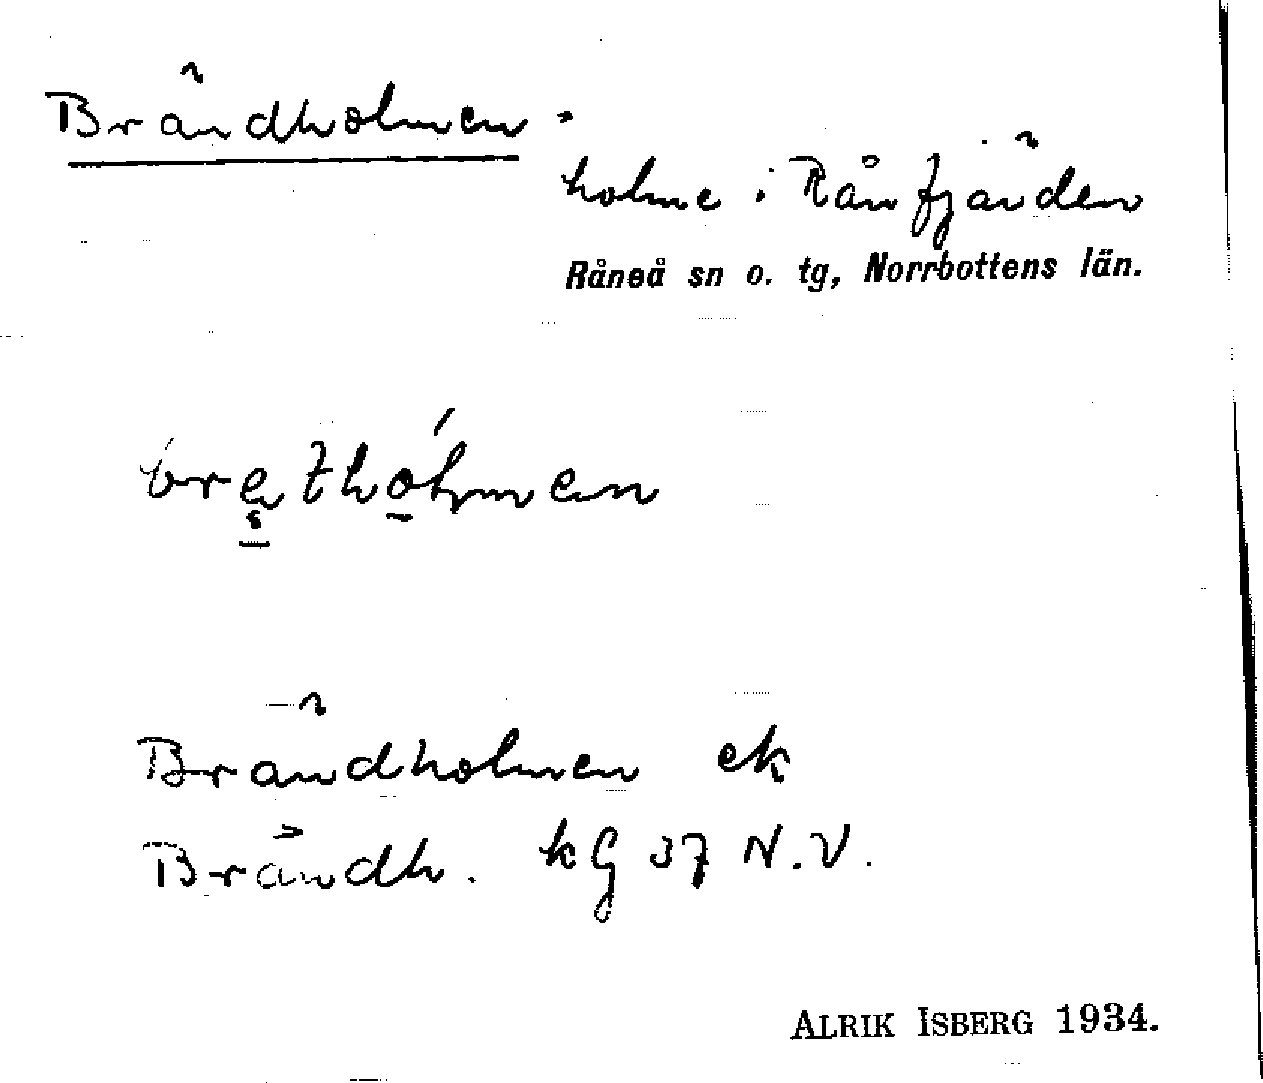 Brändholmen.
holme i Rånfjärden
Råneå sn o. tg, Norrbottens län.
Brändholmen ek
Brändh. kG 37 N.V.
ALRIK ISBERG 1934.